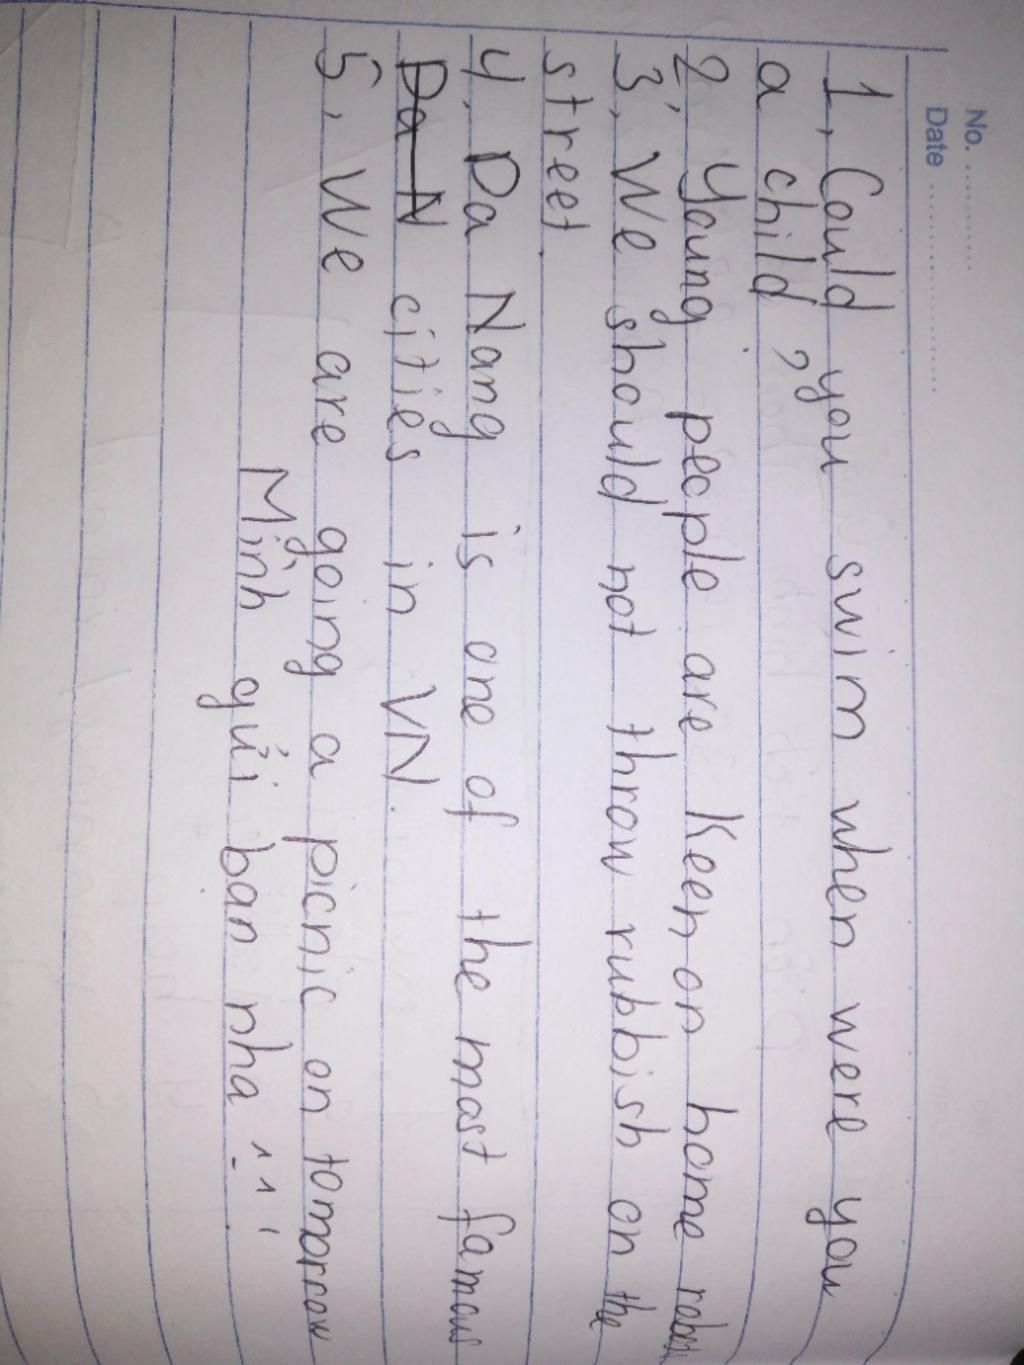 No. ............
Date ........................
1, Could you swim when were you
a child ?
2, Young people are keen on home
3, We should not throw rubbish on the
street.
4, Da Nang is one of the most famous
Da N cities in VN.
5, We are going a picnic on tomorrow
Mình gửi bạn nha